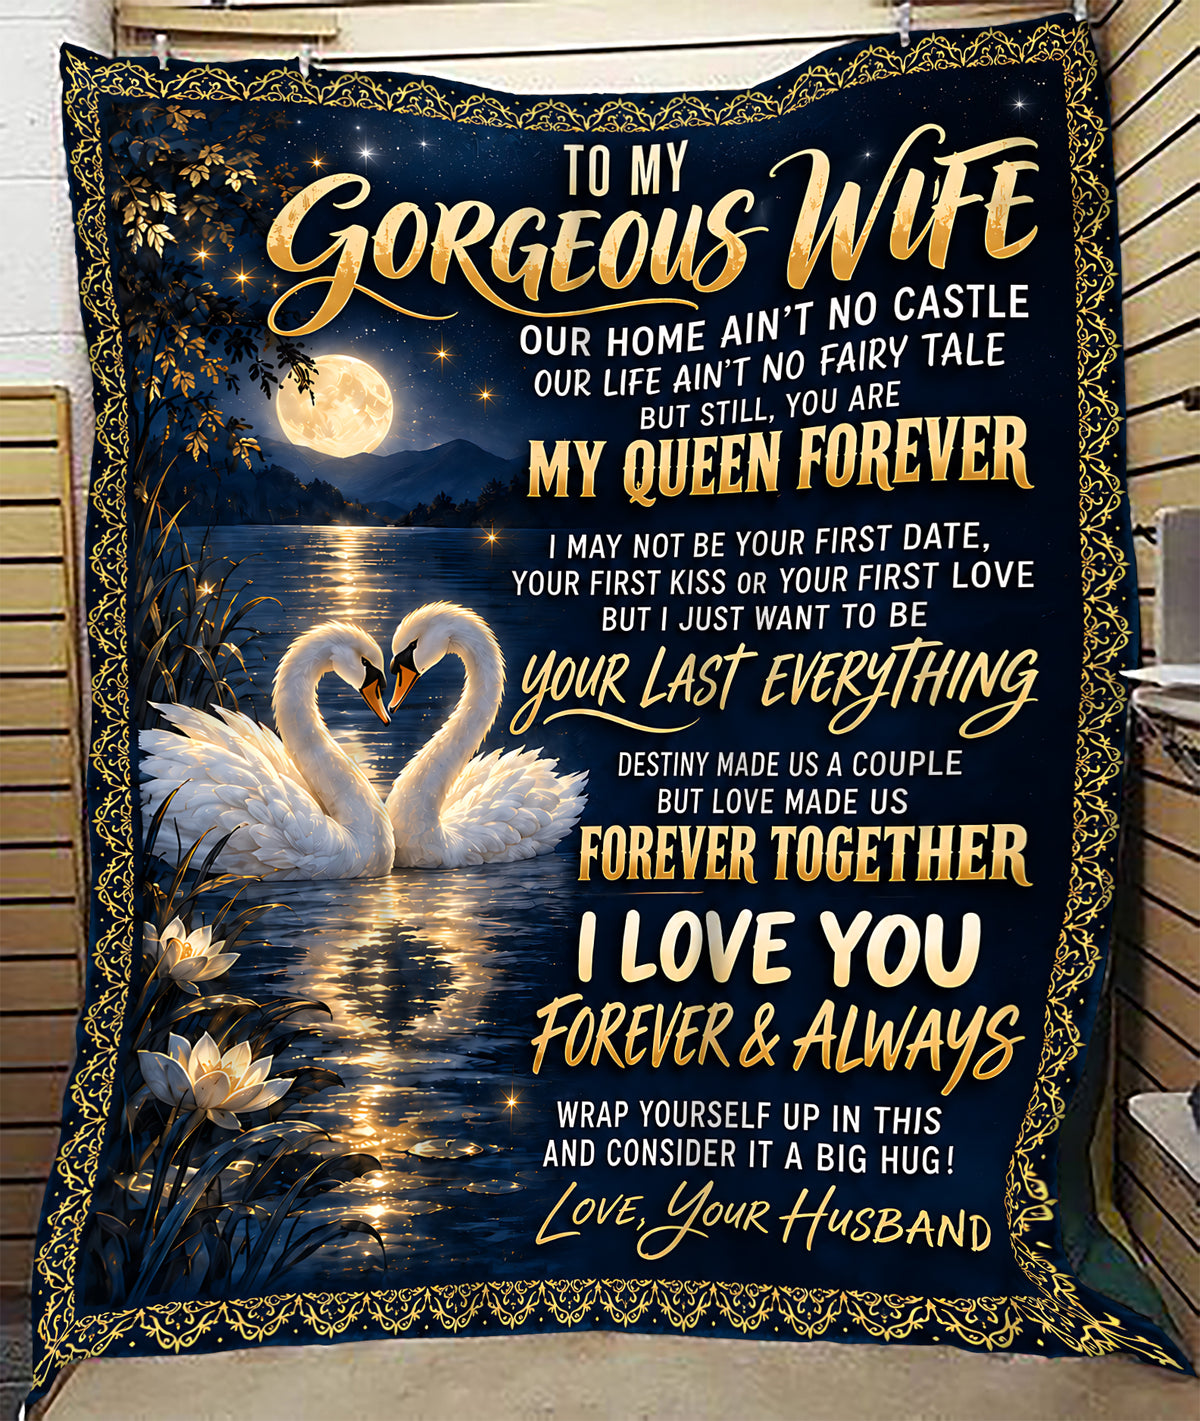 TO MY
GORGEOUS WIFE
OUR HOME AIN'T NO CASTLE
OUR LIFE AIN'T NO FAIRY TALE
BUT STILL, YOU ARE
MY QUEEN FOREVER
I MAY NOT BE YOUR FIRST DATE,
YOUR FIRST KISS OR YOUR FIRST LOVE
BUT I JUST WANT TO BE
YOUR LAST EVERYTHING
DESTINY MADE US A COUPLE
BUT LOVE MADE US
FOREVER TOGETHER
I LOVE YOU
FOREVER & ALWAYS
WRAP YOURSELF UP IN THIS
AND CONSIDER IT A BIG HUG!
LOVE, YOUR HUSBAND